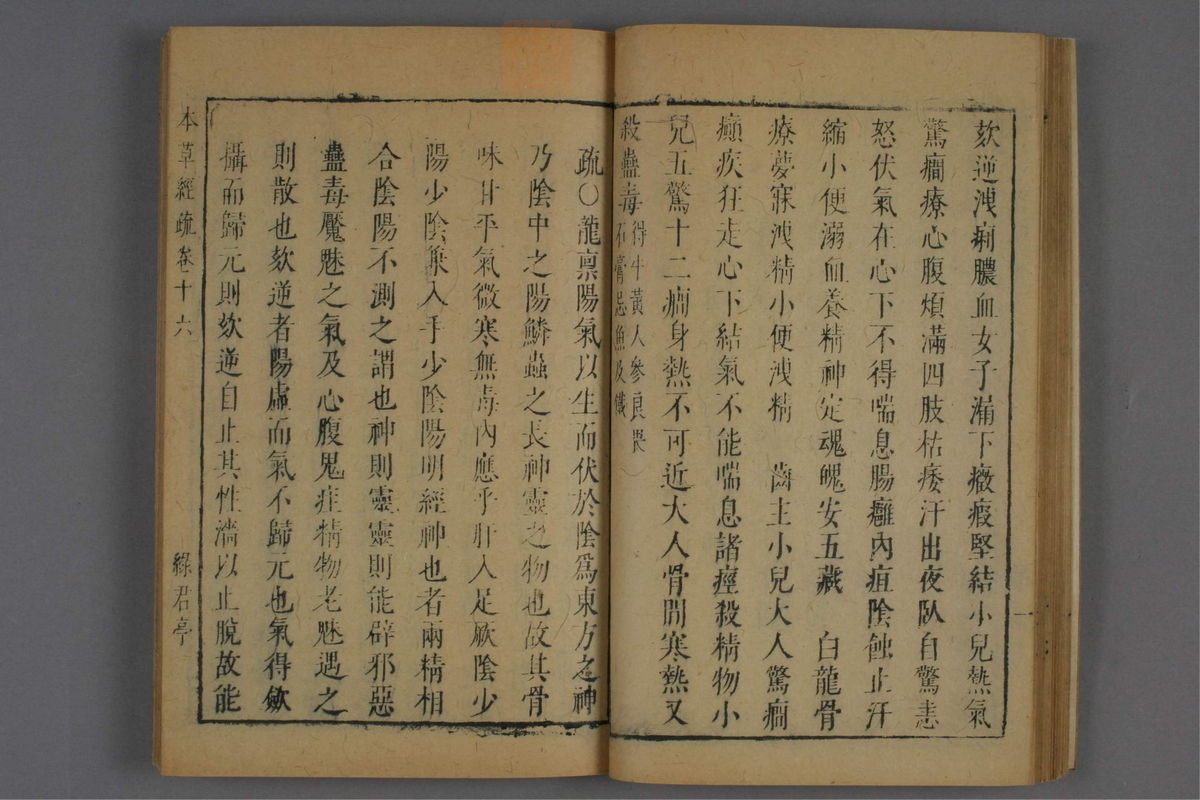 欬逆洩痢膿血女子漏下癥瘕堅結小兒熱氣
驚癎療心腹煩滿四肢枯痿汗出夜臥自驚恚
怒伏氣在心下不得喘息腸癰內疽陰蝕止汗
縮小便溺血養精神定魂魄安五藏 白龍骨
療夢寐洩精小便洩精 齒主小兒大人驚癎
癲疾狂走心下結氣不能喘息諸痙殺精物小
兒五驚十二癎身熱不可近大人骨間寒熱又
殺蠱毒
得牛黃人參良畏
石膏忌魚及鐵
疏○龍稟陽氣以生而伏於陰爲東方之神
乃陰中之陽鱗蟲之長神靈之物也故其骨
味甘平氣微寒無毒內應乎肝入足厥陰少
陽少陰兼入手少陰陽明經神也者兩精相
合陰陽不測之謂也神則靈靈則能辟邪惡
蠱毒魘魅之氣及心腹鬼疰精物老魅遇之
則散也欬逆者陽虛而氣不歸元也氣得斂
攝而歸元則欬逆自止其性濇以止脫故能
本草經疏 卷十六 綠君亭